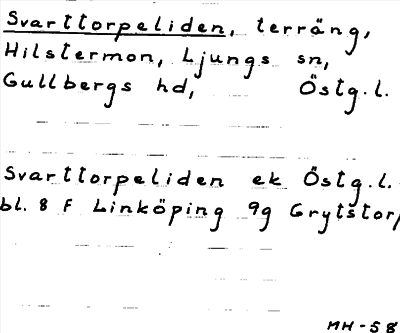 Svarttorpeliden, terräng,
Hilstermon, Ljungs sn,
Gullbergs hd, Östg.l.
Svarttorpeliden ek Östg.l.
bl. 8 F Linköping 9g Grytstorp
MH-58